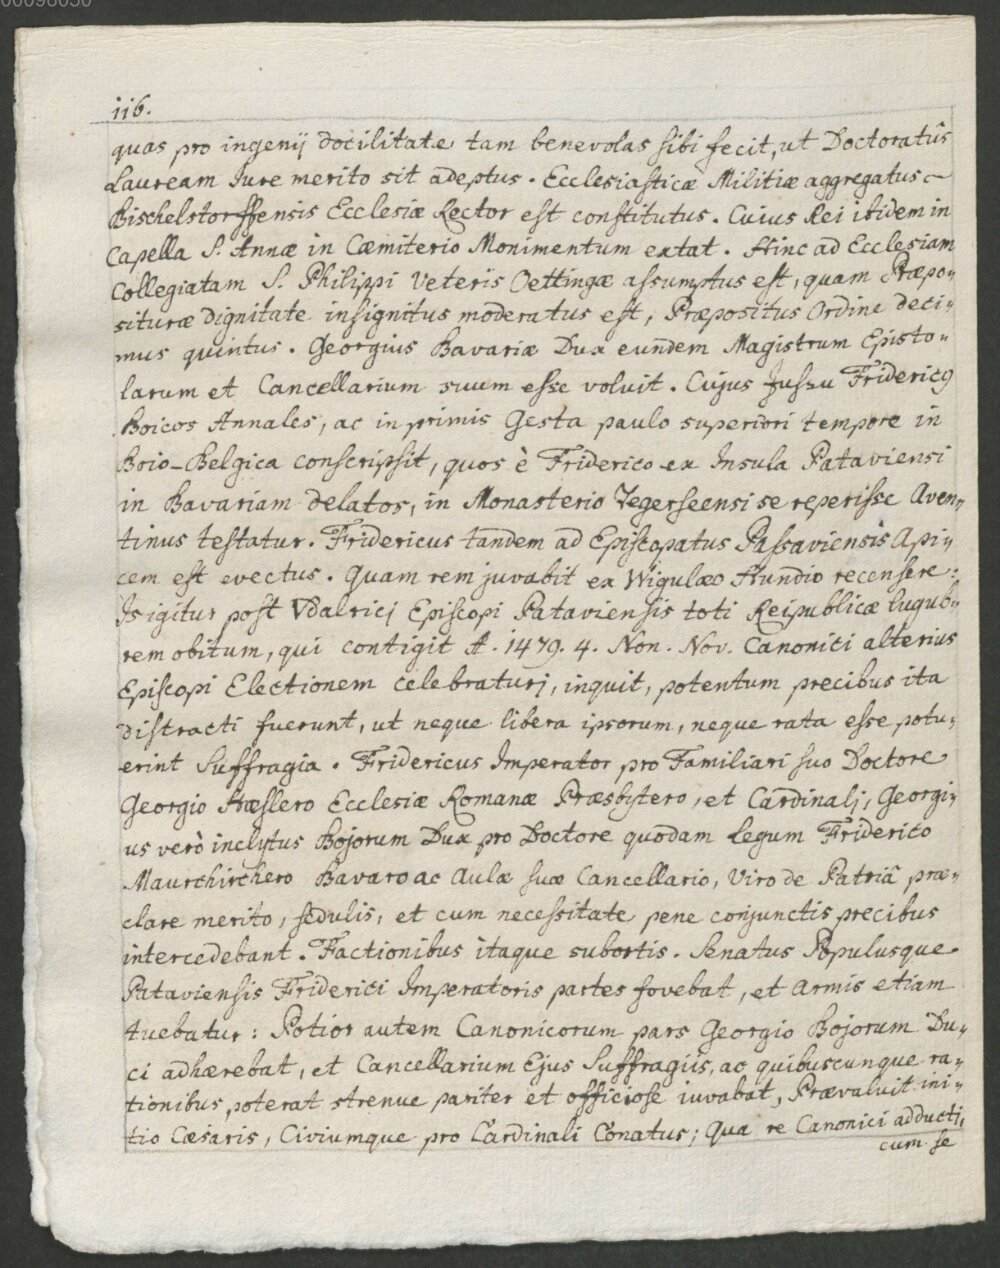 00096030
116.
quas pro ingenij docilitate tam benevolas sibi fecit, ut Doctoratûs
Lauream Jure merito sit adeptus. Ecclesiasticæ Militiæ aggregatus
Bischelstorffensis Ecclesiæ Rector est constitutus. Cuius Rei ibidem in
Capella S. Annæ in Cæmiterio Monimentum extat. Hinc ad Ecclesiam
Collegiatam S. Philippi Veteris Oettingæ assumptus est, quam Præpo-
situræ dignitate insignitus moderatus est, Præpositus Ordine deci-
mus quintus. Georgius Bavariæ Dux eundem Magistrum Episto-
larum et Cancellarium suum esse voluit. Cujus Jussu Fridericꝯ
Boicos Annales, ac in primis Gesta paulo superiori tempore in
Boio-Belgica conscripsit, quos è Friderico ex Insula Pataviensi
in Bavariam delatos, in Monasterio Tegerseensi se reperisse Aven-
tinus testatur. Fridericus tandem ad Episcopatus Passaviensis Api-
cem est evectus. Quam rem juvabit ex Wigulæo Hundio recensere:
Is igitur post Vdalricj Episcopi Pataviensis toti Reipublicæ lugub-
rem obitum, qui contigit A. 1479. 4. Non. Nov. Canonici alterius
Episcopi Electionem celebraturj, inquit, potentum precibus ita
distracti fuerunt, ut neque libera ipsorum, neque rata esse potu-
erint Suffragia. Fridericus Imperator pro Familiari suo Doctore
Georgio Hæslero Ecclesiæ Romanæ Præsbytero, et Cardinalj, Georgi-
us verò inclytus Bojorum Dux pro Doctore quodam Legum Friderico
Maurchirchero Bavaro ac Aulæ suæ Cancellario, Viro de Patriâ præ-
clare merito, sedulis, et cum necessitate pene conjunctis precibus
intercedebant. Factionibus itaque subortis. Senatus Populusque
Pataviensis Friderici Imperatoris partes fovebat, et Armis etiam
tuebatur: Potior autem Canonicorum pars Georgio Bojorum Du-
ci adhærebat, et Cancellarium Ejus Suffragiis, ac quibuscunque ra-
tionibus poterat strenue pariter et officiose iuvabat, Prævaluit ini-
tio Cæsaris, Civiumque pro Cardinali Conatus; Qua re Canonici adducti,
cum se